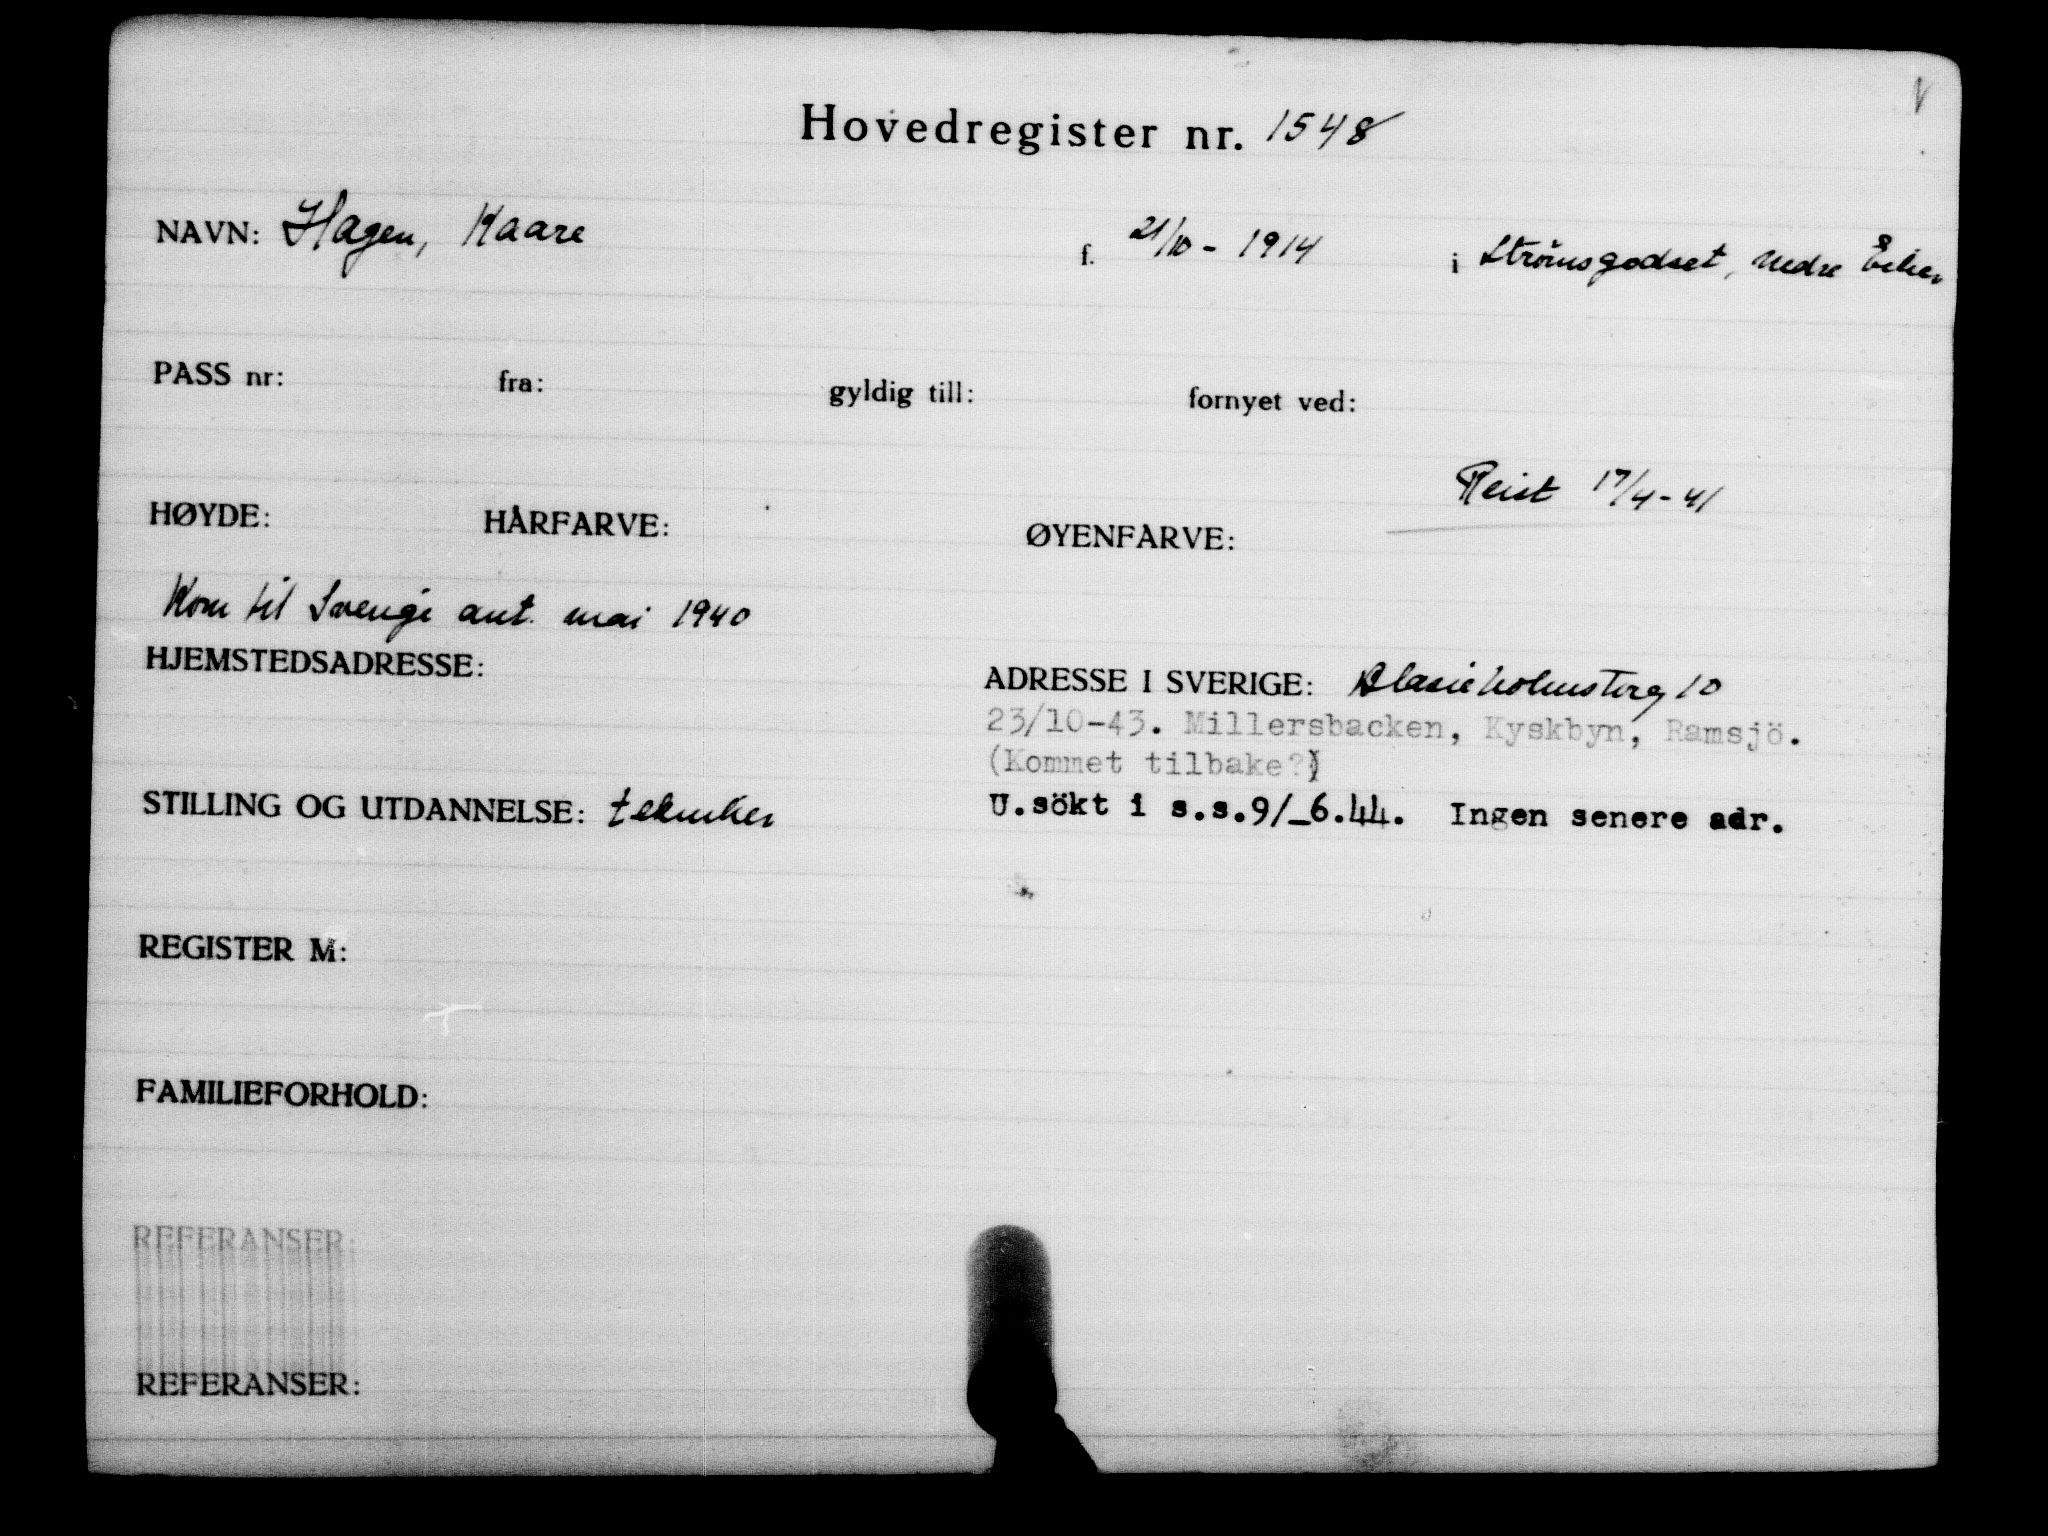 V
Hovedregister nr. 1548
NAVN: Hagen, Kaare f. 21/10 - 1914 i Strömsgodset, Nedre Eiker
PASS nr: fra: gyldig till: fornyet ved:
Reist 17/4-41
HØYDE: HÅRFARVE: ØYENFARVE:
Kom til Sverige ant. mai 1940
HJEMSTEDSADRESSE: ADRESSE I SVERIGE: Blasieholmstorg 10
23/10-43. Millersbacken, Kyskbyn, Ramsjö.
(Kommet tilbake?)
STILLING OG UTDANNELSE: tekniker U.sökt i s.s.9/_6.44. Ingen senere adr.
REGISTER M:
FAMILIEFORHOLD:
REFERANSER:
REFERANSER: